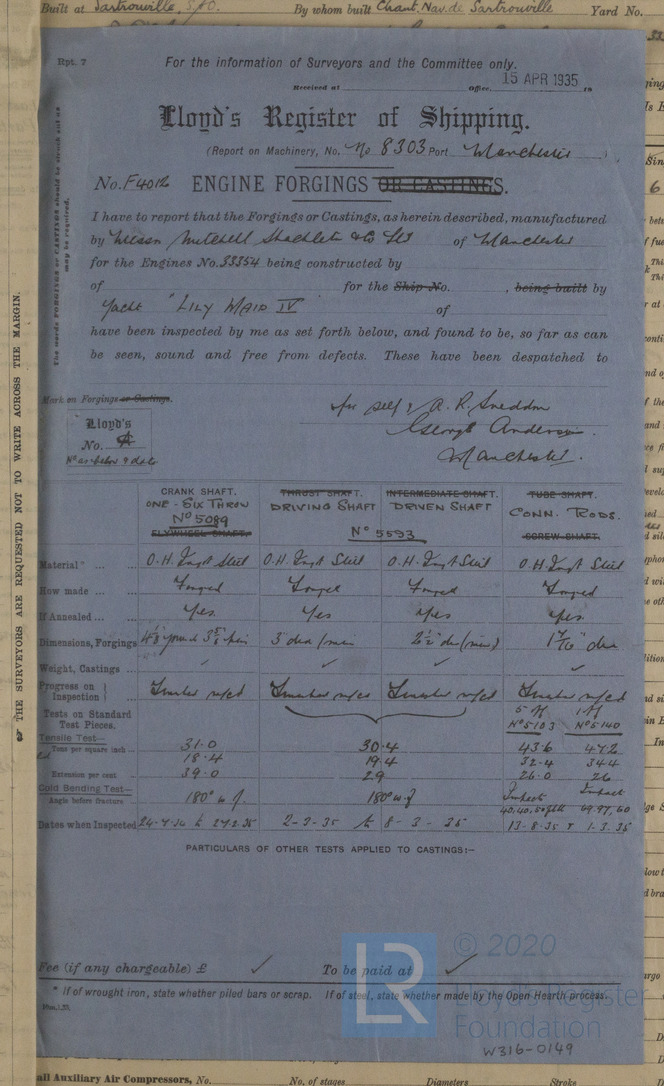 Built at Sartrouville, S/O. By whom built Chant. Nav. de Sartrouville Yard No.
Rpt. 7 For the information of Surveyors and the Committee only.
Received at Office, 15 APR 1935 19
Lloyd's Register of Shipping.
(Report on Machinery, No. No 8303 Port Manchester )
No. F4012 ENGINE FORGINGS OR CASTINGS.
I have to report that the Forgings or Castings, as herein described, manufactured
by Messrs Mitchell Shackleton & Co Ltd of Manchester
for the Engines No. 33354 being constructed by
of for the Ship No. , being built by
Yacht "LILY MAID IV of
have been inspected by me as set forth below, and found to be, so far as can
be seen, sound and free from defects. These have been despatched to
The words FORGINGS or CASTINGS should be struck out as
may be required.
☞ THE SURVEYORS ARE REQUESTED NOT TO WRITE ACROSS THE MARGIN.
Mark on Forgings or Castings.
Lloyd's
No.
No as below & date
for self & A. R. Sneddon
George Anderson.
Manchester.
CRANK SHAFT. THRUST SHAFT. INTERMEDIATE SHAFT. TUBE SHAFT.
ONE - SIX THROW DRIVING SHAFT DRIVEN SHAFT CONN. RODS.
No 5089 No 5593
FLYWHEEL SHAFT. SCREW SHAFT.
Material * ... O.H. Ingt Steel O.H. Ingt Steel O.H. Ingt Steel O.H. Ingt Steel
How made ... Forged Forged Forged Forged
If Annealed ... Yes Yes Yes Yes
Dimensions, Forgings 3" dia (min 2½" dia (min) 1 7/16" dia
Weight, Castings ... ✓ ✓ ✓
Progress on Inspection }
Tests on Standard
Test Pieces. No 5103 No 5140
Tensile Test—
Tons per square inch ... 31.0 30.4 43.6 47.2
18.4 19.4 32.4 34.4
Extension per cent 39.0 29 26.0 26
Cold Bending Test— Impact Impact
Angle before fracture 180° w.f. 180° w.f. 49.97, 60
Dates when Inspected 2-2-35 to 8-3-35 1-3.35
PARTICULARS OF OTHER TESTS APPLIED TO CASTINGS:—
Fee (if any chargeable) £ ✓ To be paid at ✓
* If of wrought iron, state whether piled bars or scrap. If of steel, state whether made by the Open Hearth process.
© 2020
LR
Lloyd's Register
Foundation
W316-0149
all Auxiliary Air Compressors, No. No. of stages Diameters Stroke